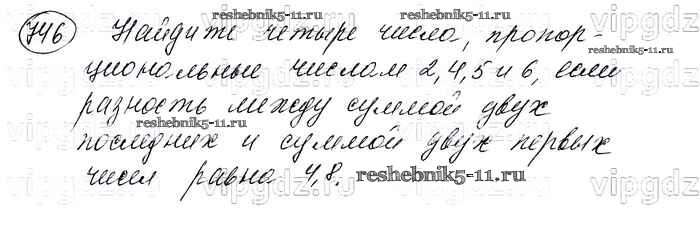 746 Найдите четыре числа, пропор-
циональные числам 2,4,5 и 6, если
разность между суммой двух
последних и суммой двух первых
чисел равна 4,8.
reshebnik5-11.ru
reshebnik5-11.ru
reshebnik5-11.ru
reshebnik5-11.ru
vipgdz.ru
vipgdz.ru
vipgdz.ru
vipgdz.ru